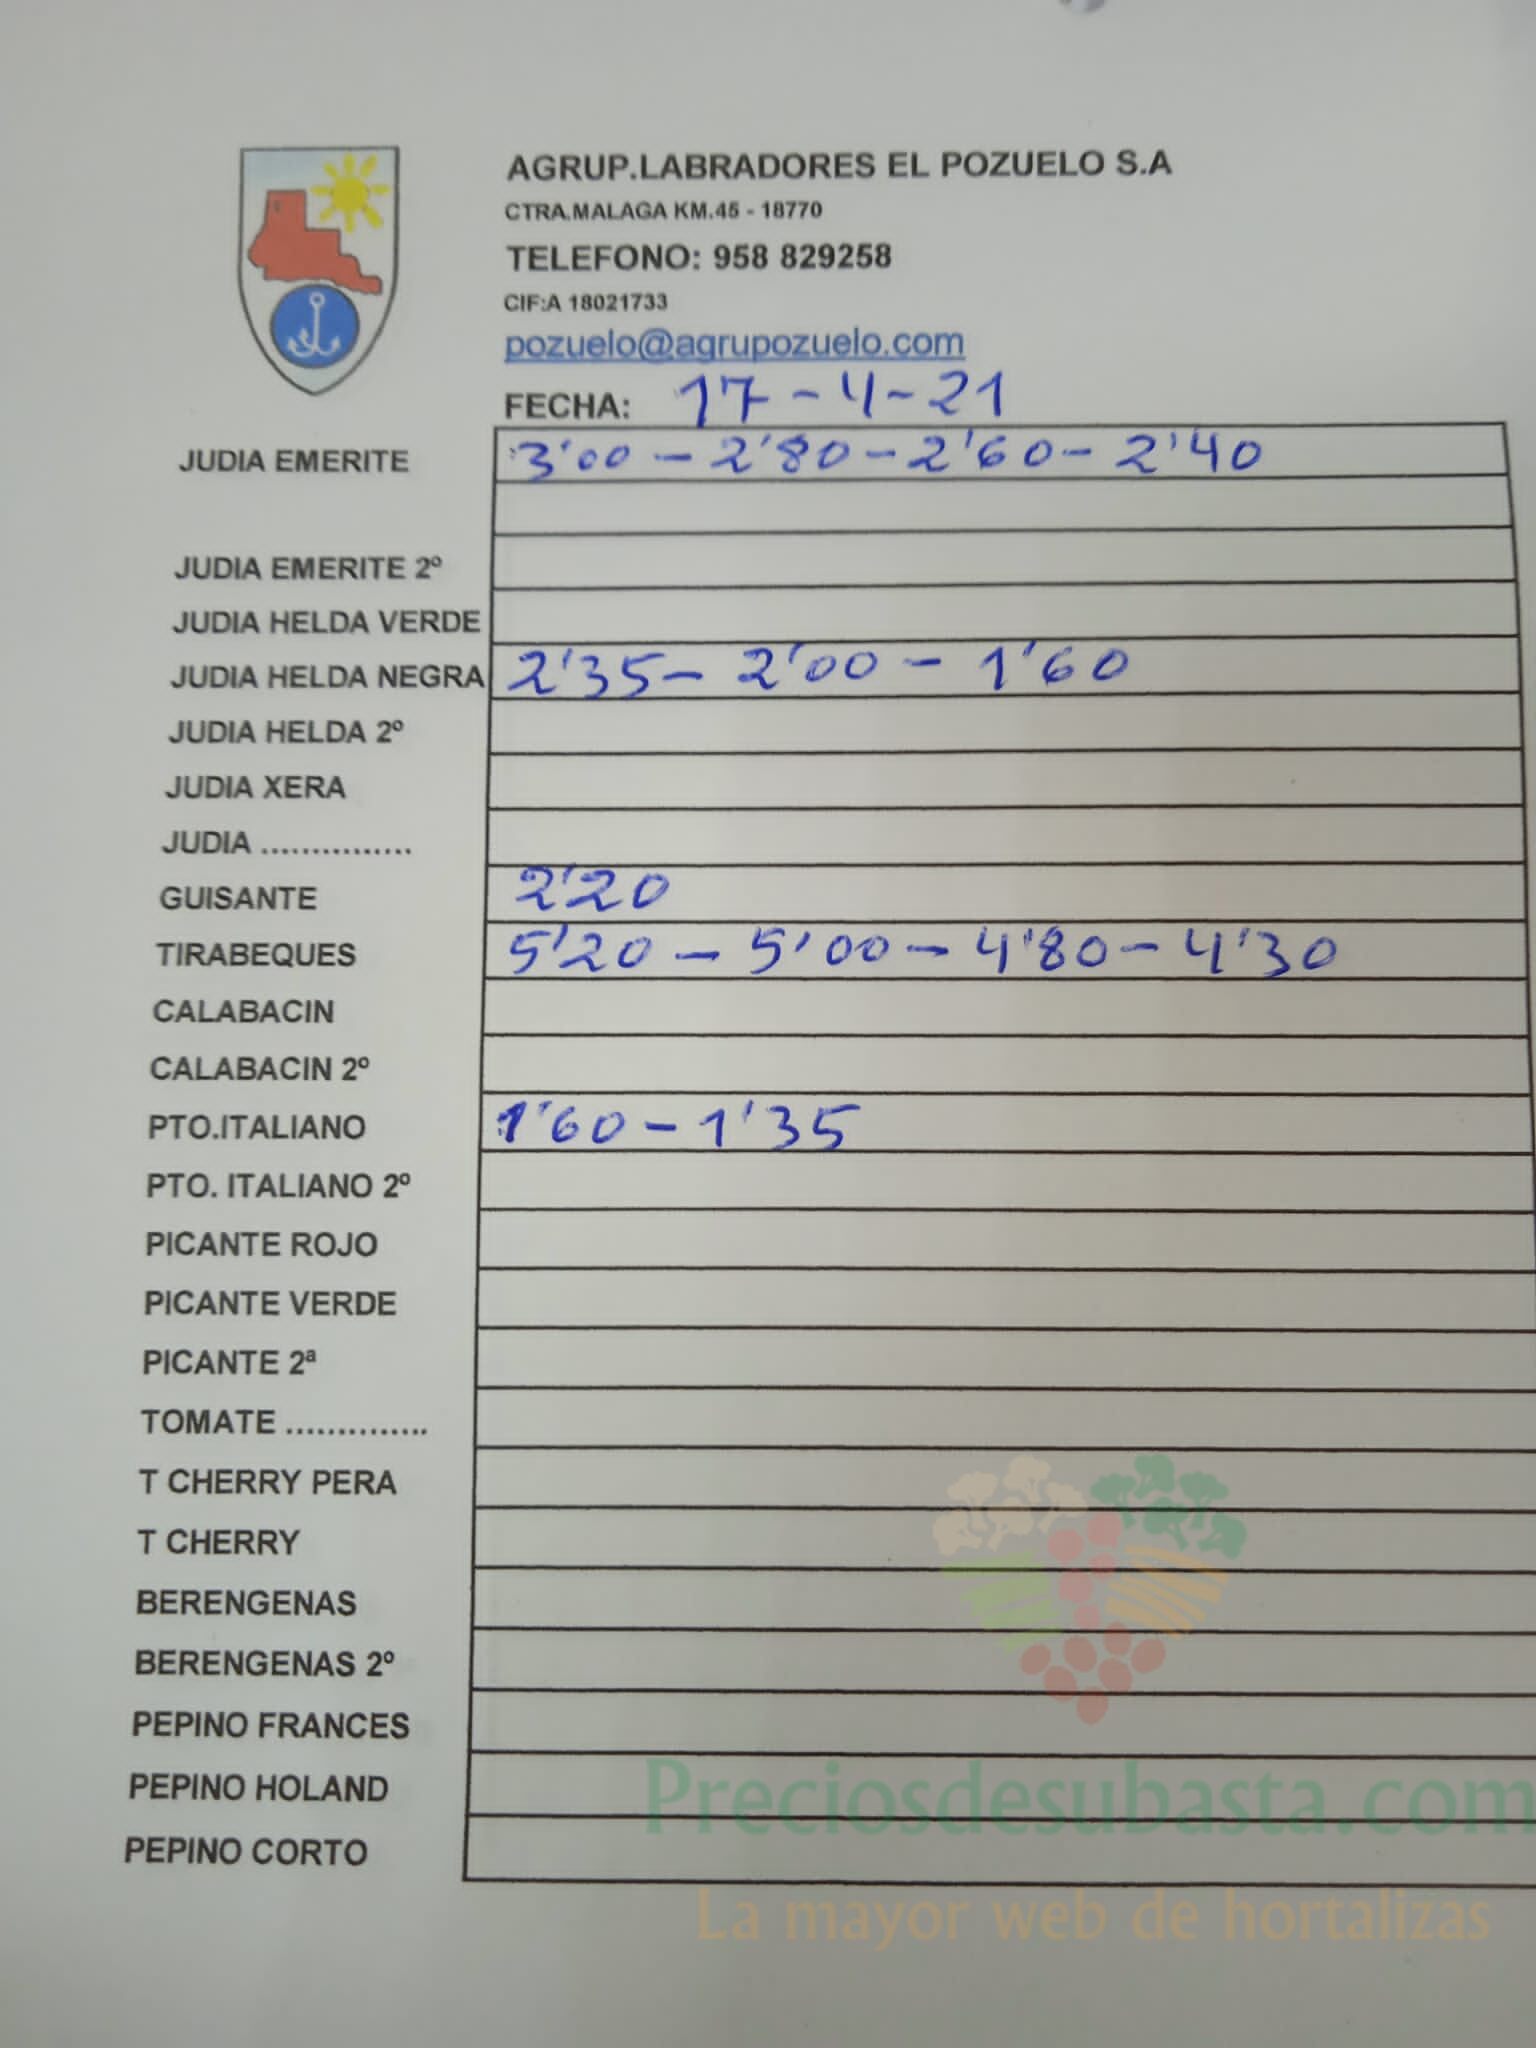 AGRUP.LABRADORES EL POZUELO S.A
CTRA.MALAGA KM.45 - 18770
TELEFONO: 958 829258
CIF:A 18021733
pozuelo@agrupozuelo.com
FECHA: 17-4-21
JUDIA EMERITE 3'00 - 2'80 - 2'60 - 2'40
JUDIA EMERITE 2º
JUDIA HELDA VERDE
JUDIA HELDA NEGRA 2'35 - 2'00 - 1'60
JUDIA HELDA 2º
JUDIA XERA
JUDIA ...............
GUISANTE 2'20
TIRABEQUES 5'20 - 5'00 - 4'80 - 4'30
CALABACIN
CALABACIN 2º
PTO.ITALIANO 1'60 - 1'35
PTO. ITALIANO 2º
PICANTE ROJO
PICANTE VERDE
PICANTE 2ª
TOMATE ..............
T CHERRY PERA
T CHERRY
BERENGENAS
BERENGENAS 2º
PEPINO FRANCES
PEPINO HOLAND
PEPINO CORTO
Preciosdesubasta.com
La mayor web de hortalizas